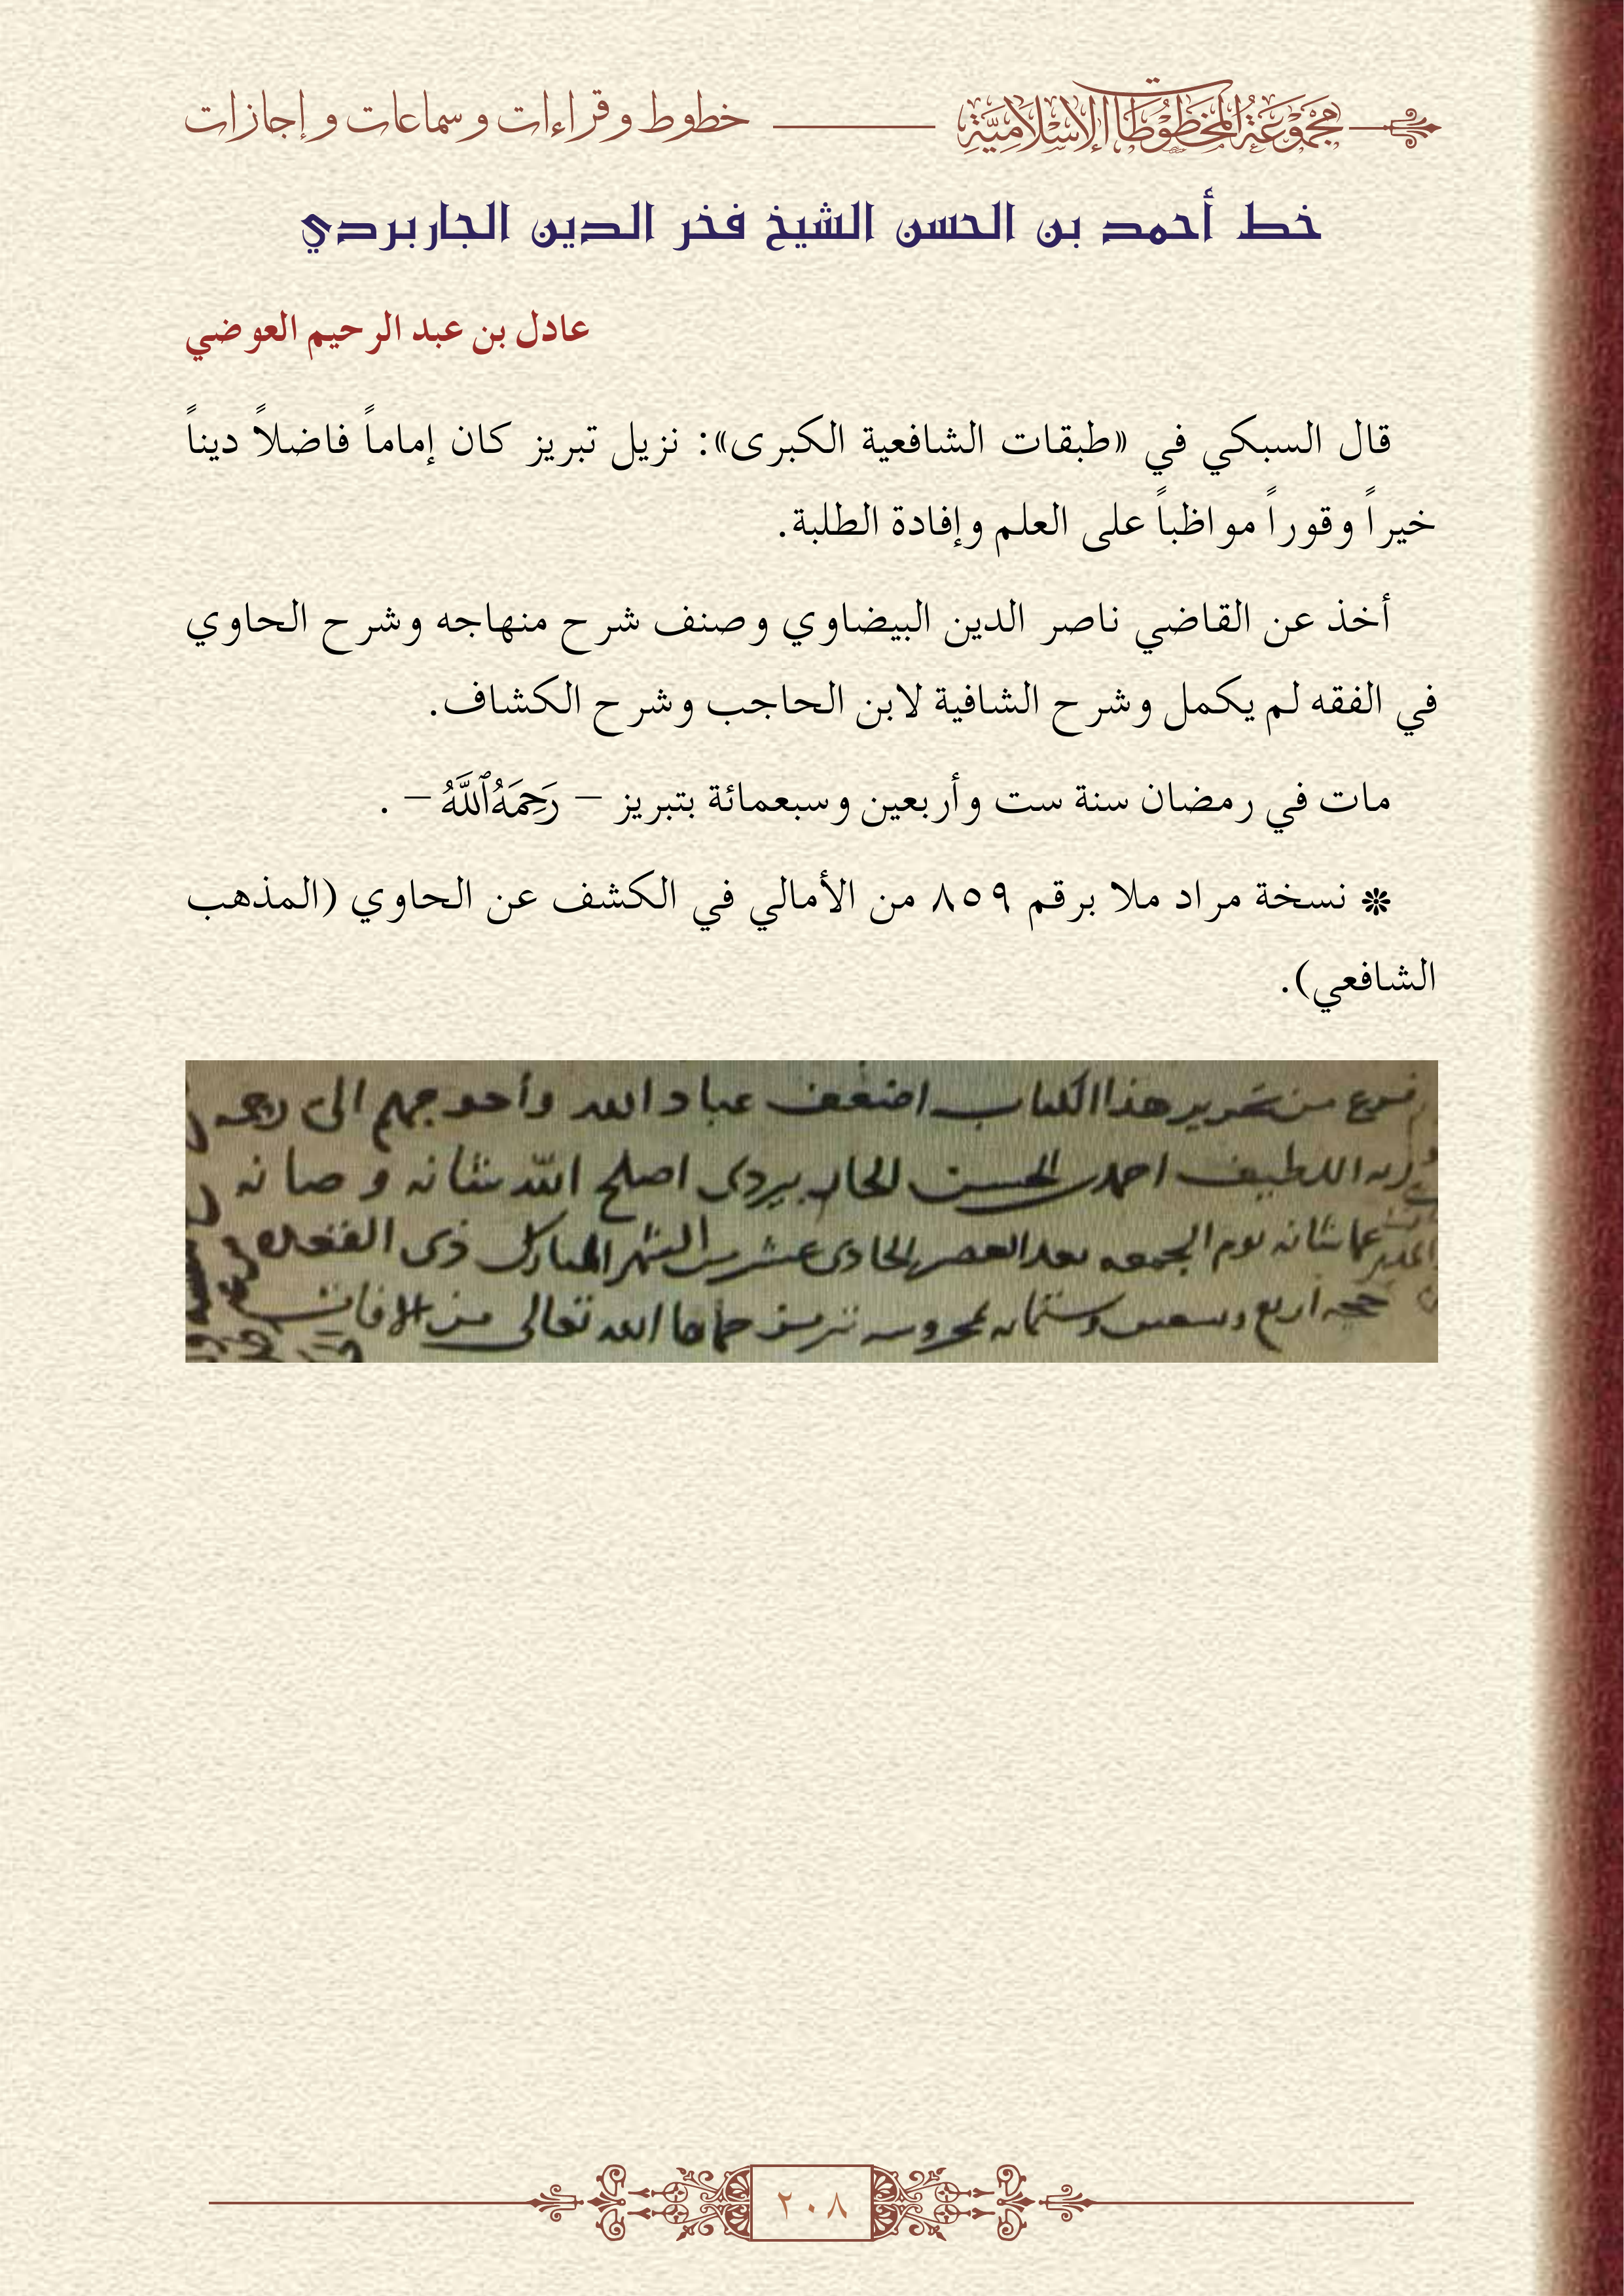 مجموعة المخطوطات الإسلامية خطوط وقراءات وسماعات وإجازات
خط أحمد بن الحسن الشيخ فخر الدين الجاربردي
عادل بن عبد الرحيم العوضي
قال السبكي في «طبقات الشافعية الكبرى»: نزيل تبريز كان إماماً فاضلاً ديناً
خيراً وقوراً مواظباً على العلم وإفادة الطلبة.
أخذ عن القاضي ناصر الدين البيضاوي وصنف شرح منهاجه وشرح الحاوي
في الفقه لم يكمل وشرح الشافية لابن الحاجب وشرح الكشاف.
مات في رمضان سنة ست وأربعين وسبعمائة بتبريز – رَحِمَهُ ٱللَّهُ – .
❇ نسخة مراد ملا برقم ٨٥٩ من الأمالي في الكشف عن الحاوي (المذهب
الشافعي).
فرغ من تحرير هذا الكتاب اضعف عباد الله وأحوجهم الى رحمة
ربه اللطيف احمد بن الحسن الجاربردى اصلح الله شانه وصانه
عما شانه يوم الجمعه بعد العصر الحادى عشر من الشهر المبارك ذى القعده
حجه اربع وستمايه بمحروسه تبريز حماها الله تعالى من الافات
٢٠٨